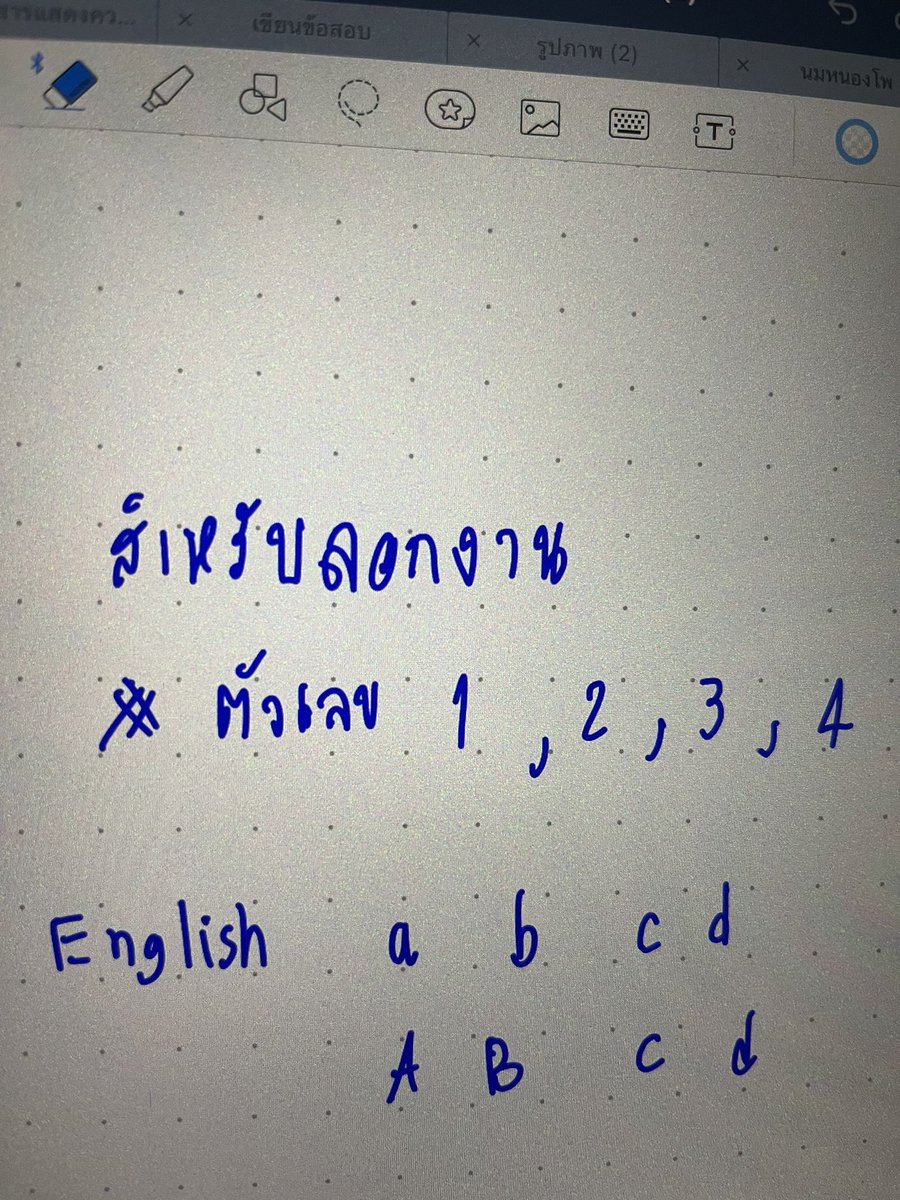 เขียนข้อสอบ
รูปภาพ (2)
นมหนองโพ
T
สำหรับลอกงาน
※ ตัวเลข 1 , 2 , 3 , 4
English a b c d
A B c d